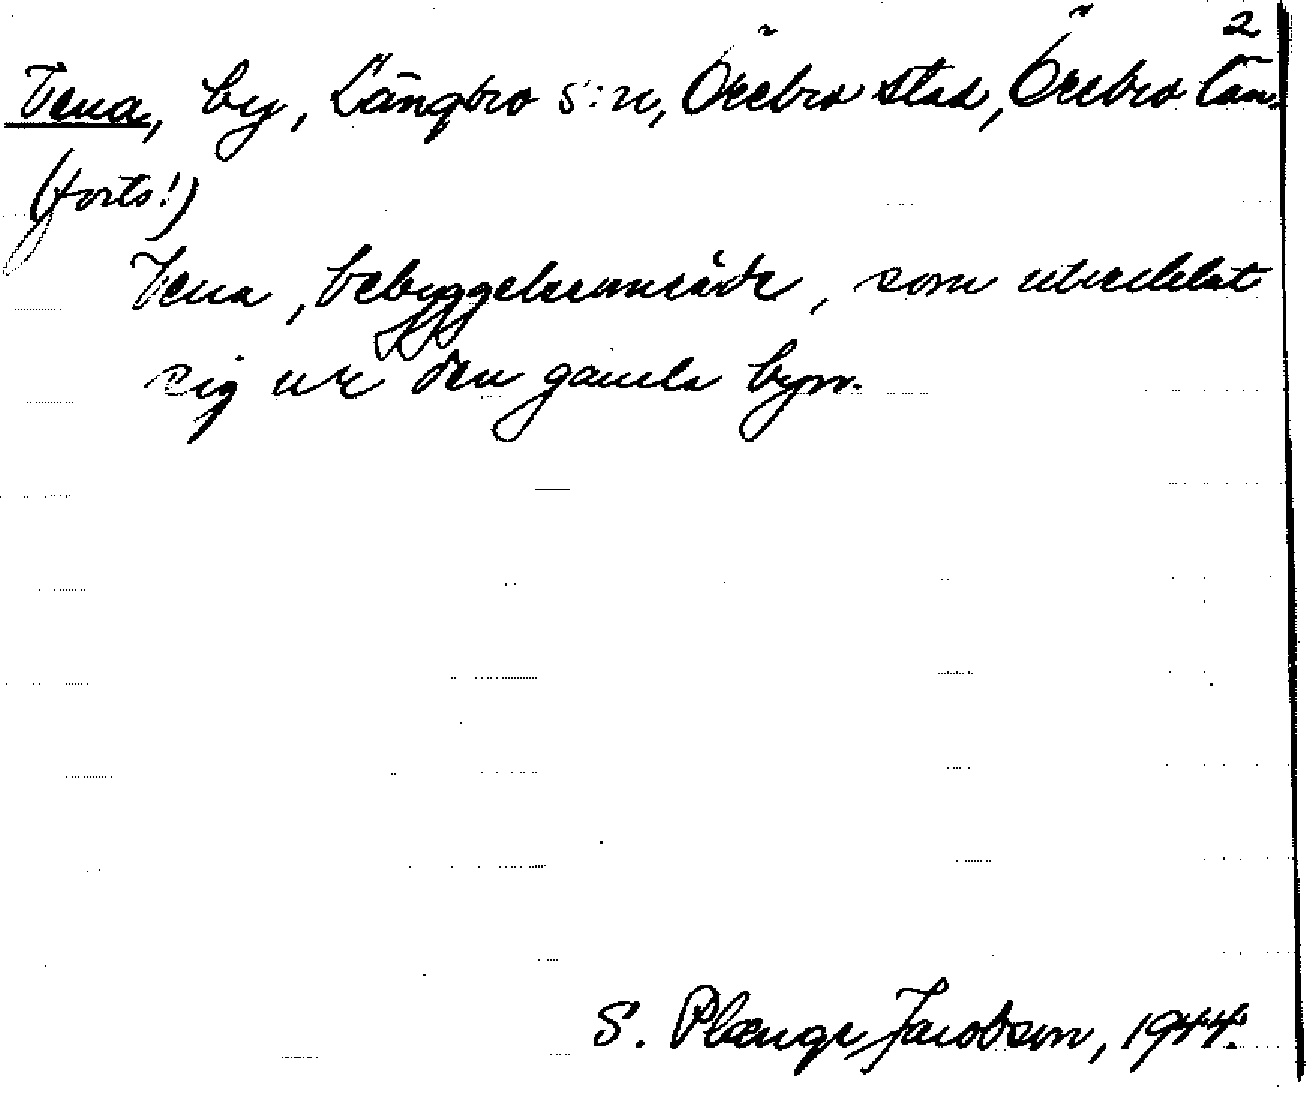 2
Vena, by, Längbro s:n, Örebro stad, Örebro län.
(forts!)
Vena, bebyggelseområde, som utvecklat
sig ur den gamla byn.
S. Plænge Jacobson, 1944.